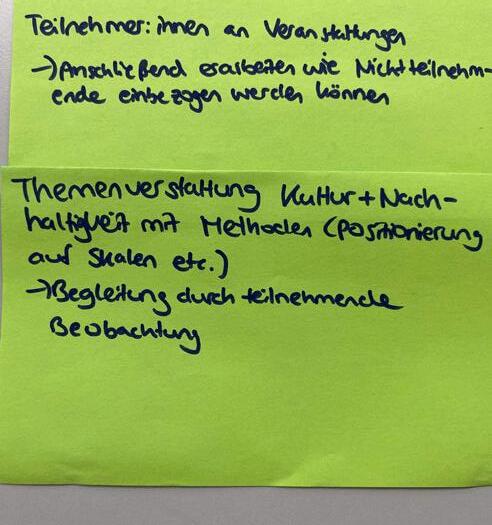 Teilnehmer:innen an Veranstaltungen
→Anschließend erarbeiten wie Nichtteilnehm-
ende einbezogen werden können
Themenverstaltung Kultur+Nach-
haltigkeit mit Methoden (Positionierung
auf Skalen etc.)
→Begleitung durch teilnehmende
Beobachtung